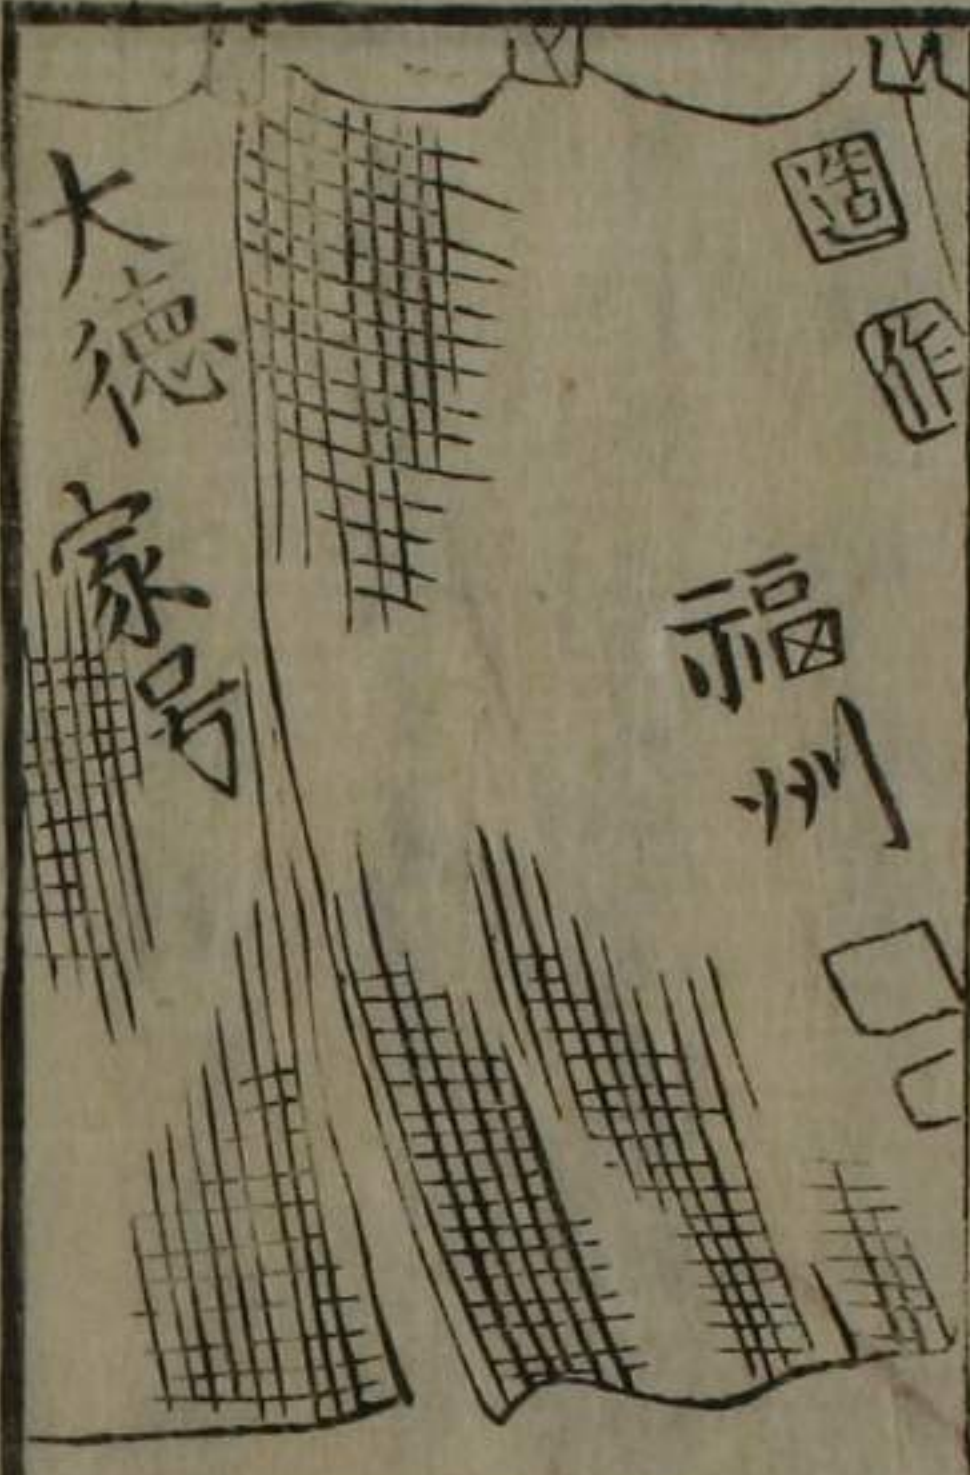 造作
福州
大徳家号